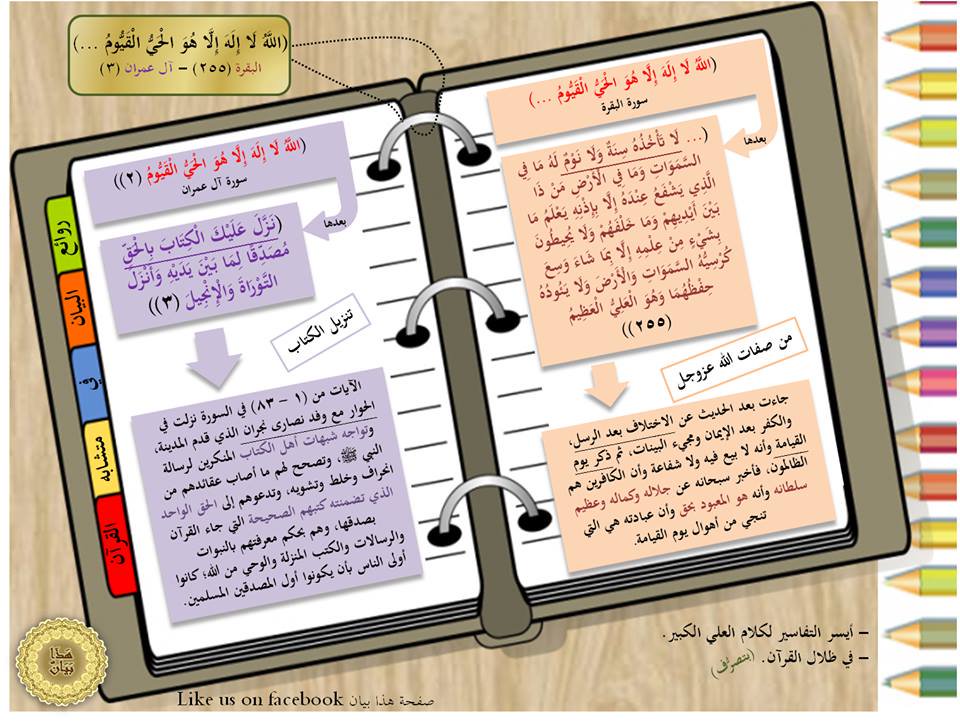 (اللَّهُ لَا إِلَهَ إِلَّا هُوَ الْحَيُّ الْقَيُّومُ ...)
البقرة (٢٥٥) – آل عمران (٣)
(اللَّهُ لَا إِلَهَ إِلَّا هُوَ الْحَيُّ الْقَيُّومُ ...)
سورة البقرة
بعدها
(... لَا تَأْخُذُهُ سِنَةٌ وَلَا نَوْمٌ لَهُ مَا فِي
السَّمَوَاتِ وَمَا فِي الْأَرْضِ مَنْ ذَا
الَّذِي يَشْفَعُ عِنْدَهُ إِلَّا بِإِذْنِهِ يَعْلَمُ مَا
بَيْنَ أَيْدِيهِمْ وَمَا خَلْفَهُمْ وَلَا يُحِيطُونَ
بِشَيْءٍ مِنْ عِلْمِهِ إِلَّا بِمَا شَاءَ وَسِعَ
كُرْسِيُّهُ السَّمَوَاتِ وَالْأَرْضَ وَلَا يَئُودُهُ
حِفْظُهُمَا وَهُوَ الْعَلِيُّ الْعَظِيمُ
(٢٥٥))
من صفات الله عزوجل
جاءت بعد الحديث عن الاختلاف بعد الرسل،
والكفر بعد الإيمان ومجيء البينات، ثم ذكر يوم
القيامة وأنه لا بيع فيه ولا شفاعة وأن الكافرين هم
الظالمون، فأخبر سبحانه عن جلاله وكماله وعظيم
سلطانه وأنه هو المعبود بحق وأن عبادته هي التي
تنجي من أهوال يوم القيامة.
(اللَّهُ لَا إِلَهَ إِلَّا هُوَ الْحَيُّ الْقَيُّومُ (٢))
سورة آل عمران
بعدها
(نَزَّلَ عَلَيْكَ الْكِتَابَ بِالْحَقِّ
مُصَدِّقًا لِمَا بَيْنَ يَدَيْهِ وَأَنْزَلَ
التَّوْرَاةَ وَالْإِنْجِيلَ (٣))
تنزيل الكتاب
الآيات من (١ – ٨٣) في السورة نزلت في
الحوار مع وفد نصارى نجران الذي قدم المدينة،
وتواجه شبهات أهل الكتاب المنكرين لرسالة
النبي ﷺ، وتصحح لهم ما أصاب عقائدهم من
انحراف وخلط وتشويه، وتدعوهم إلى الحق الواحد
الذي تضمنته كتبهم الصحيحة التي جاء القرآن
بصدقها، وهم بحكم معرفتهم بالنبوات
والرسالات والكتب المنزلة والوحي من الله؛ كانوا
أولى الناس بأن يكونوا أول المصدقين المسلمين.
روائع
البيان
في
متشابه
القرآن
– أيسر التفاسير لكلام العلي الكبير.
– في ظلال القرآن. (بتصرف)
هَذَا
بَيَانٌ
صفحة هذا بيان Like us on facebook